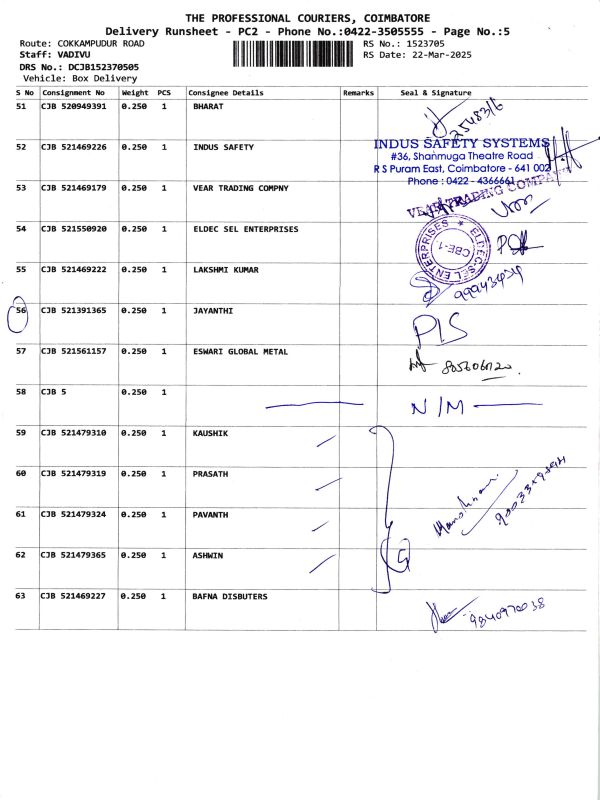 THE PROFESSIONAL COURIERS, COIMBATORE
Delivery Runsheet - PC2 - Phone No.:0422-3505555 - Page No.:5
Route: COKKAMPUDUR ROAD
RS No.: 1523705
Staff: VADIVU
RS Date: 22-Mar-2025
DRS No.: DCJB152370505
Vehicle: Box Delivery
S No Consignment No Weight PCS Consignee Details Remarks Seal & Signature
51 CJB 520949391 0.250 1 BHARAT
52 CJB 521469226 0.250 1 INDUS SAFETY
INDUS SAFETY SYSTEMS
#36, Shanmuga Theatre Road
R S Puram East, Coimbatore - 641 002
Phone : 0422 - 4366661
53 CJB 521469179 0.250 1 VEAR TRADING COMPNY
VEAR TRADING COMPANY
54 CJB 521550920 0.250 1 ELDEC SEL ENTERPRISES
ELDEC-SEL ENTERPRISES
CBE-1
55 CJB 521469222 0.250 1 LAKSHMI KUMAR
56 CJB 521391365 0.250 1 JAYANTHI
PLS
57 CJB 521561157 0.250 1 ESWARI GLOBAL METAL
58 CJB 5 0.250 1
N/M
59 CJB 521479310 0.250 1 KAUSHIK
60 CJB 521479319 0.250 1 PRASATH
61 CJB 521479324 0.250 1 PAVANTH
62 CJB 521479365 0.250 1 ASHWIN
63 CJB 521469227 0.250 1 BAFNA DISBUTERS
9840970038